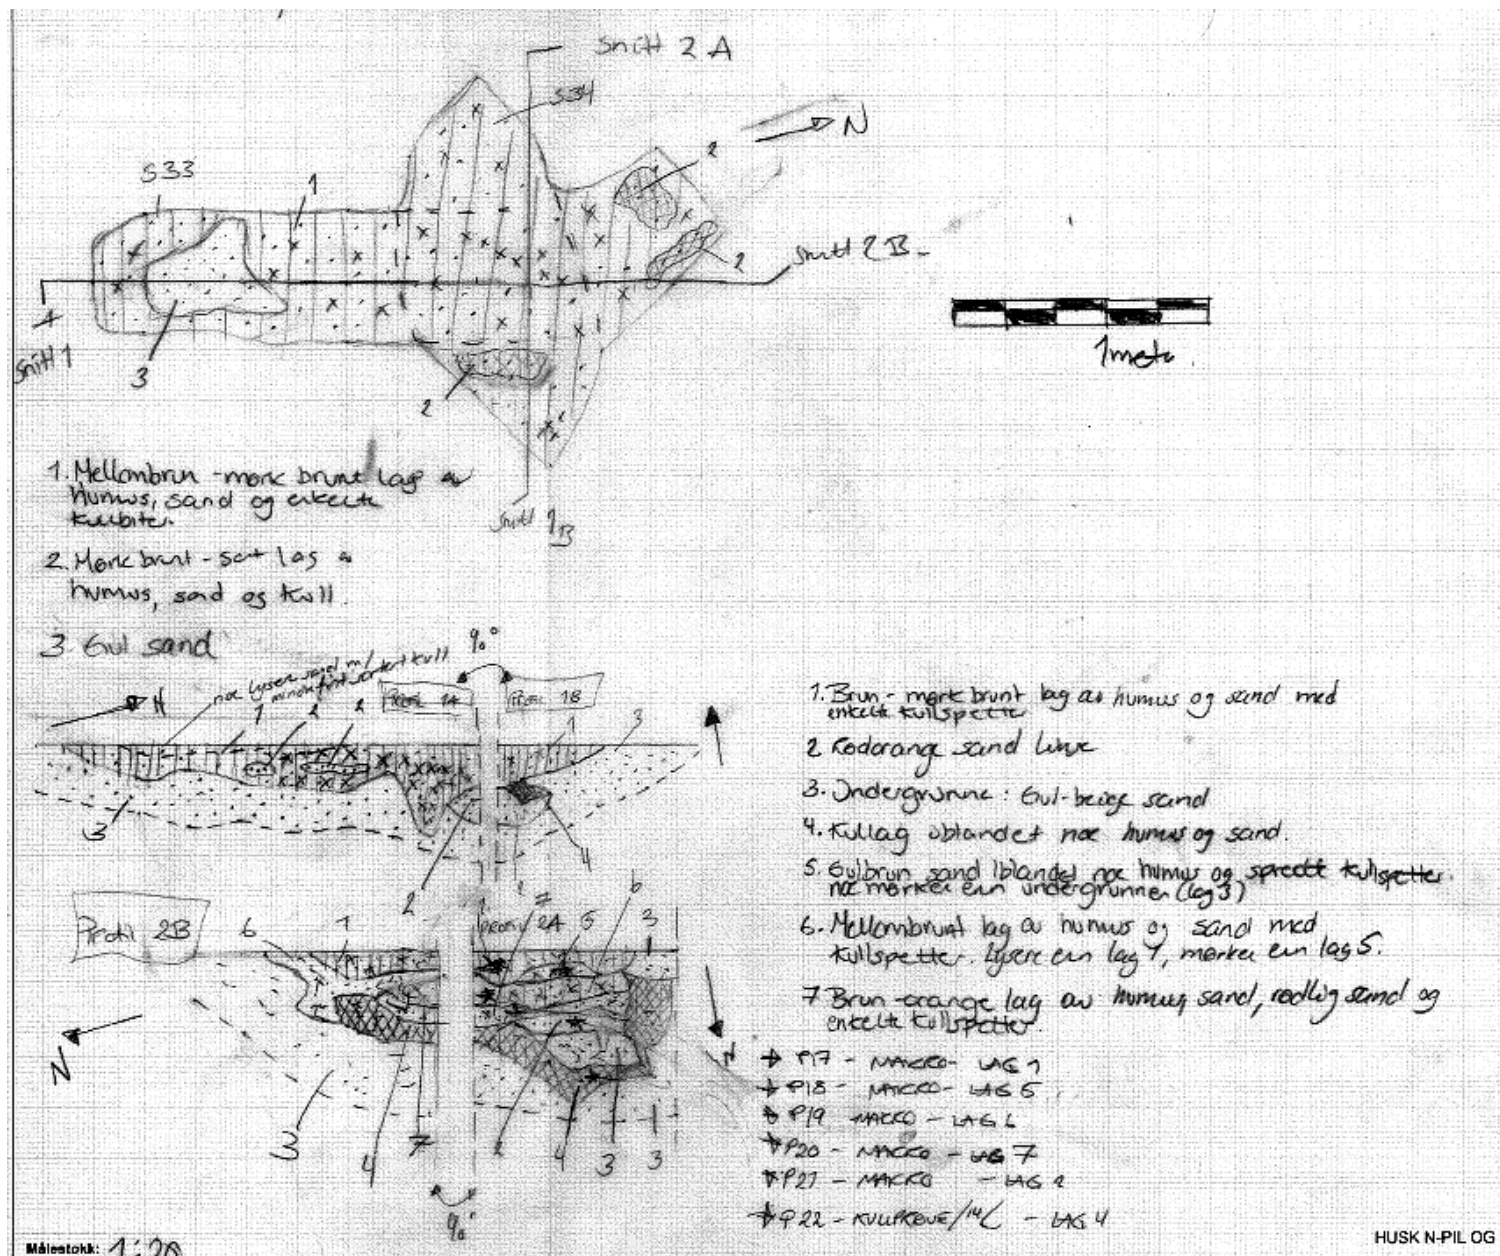 Snitt 2A
S34
N
2
S33
1
2
Snitt 2B
Snitt 1
3
2
1 meter
Snitt 1B
1. Mellombrun - mørk brunt lag av
humus, sand og enkelte
kullbiter.
2. Mørk brunt - sort lag av
humus, sand og kull.
3 Gul sand
90°
noe lysere sand m/
kull
N
Profil 1A
Profil 1B
1
2
2
1
3
3
2
4
Profil 2B
6
1
Profil 2A
7
5
6
3
N
N
3
4
7
2
4
3
3
90°
1. Brun - mørk brunt lag av humus og sand med
enkelte kullspetter
2 Rødorange sand linse
3. Undergrunn: Gul-beige sand
4. Kullag iblandet noe humus og sand.
5. Gulbrun sand iblandet noe humus og spredte kullspetter.
noe mørker enn undergrunnen (lag 3)
6. Mellombrunt lag av humus og sand med
kullspetter. Lysere enn lag 1, mørker enn lag 5.
7 Brun-orange lag av humus, sand, rødlig sand og
enkelte kullspetter.
P17 - MAKRO - LAG 1
P18 - MAKRO - LAG 5
P19 MAKRO - LAG 6
P20 - MAKRO - LAG 7
P21 - MAKRO - LAG 2
P22 - KULLPRØVE/14C - LAG 4
Målestokk: 1:20
HUSK N-PIL OG